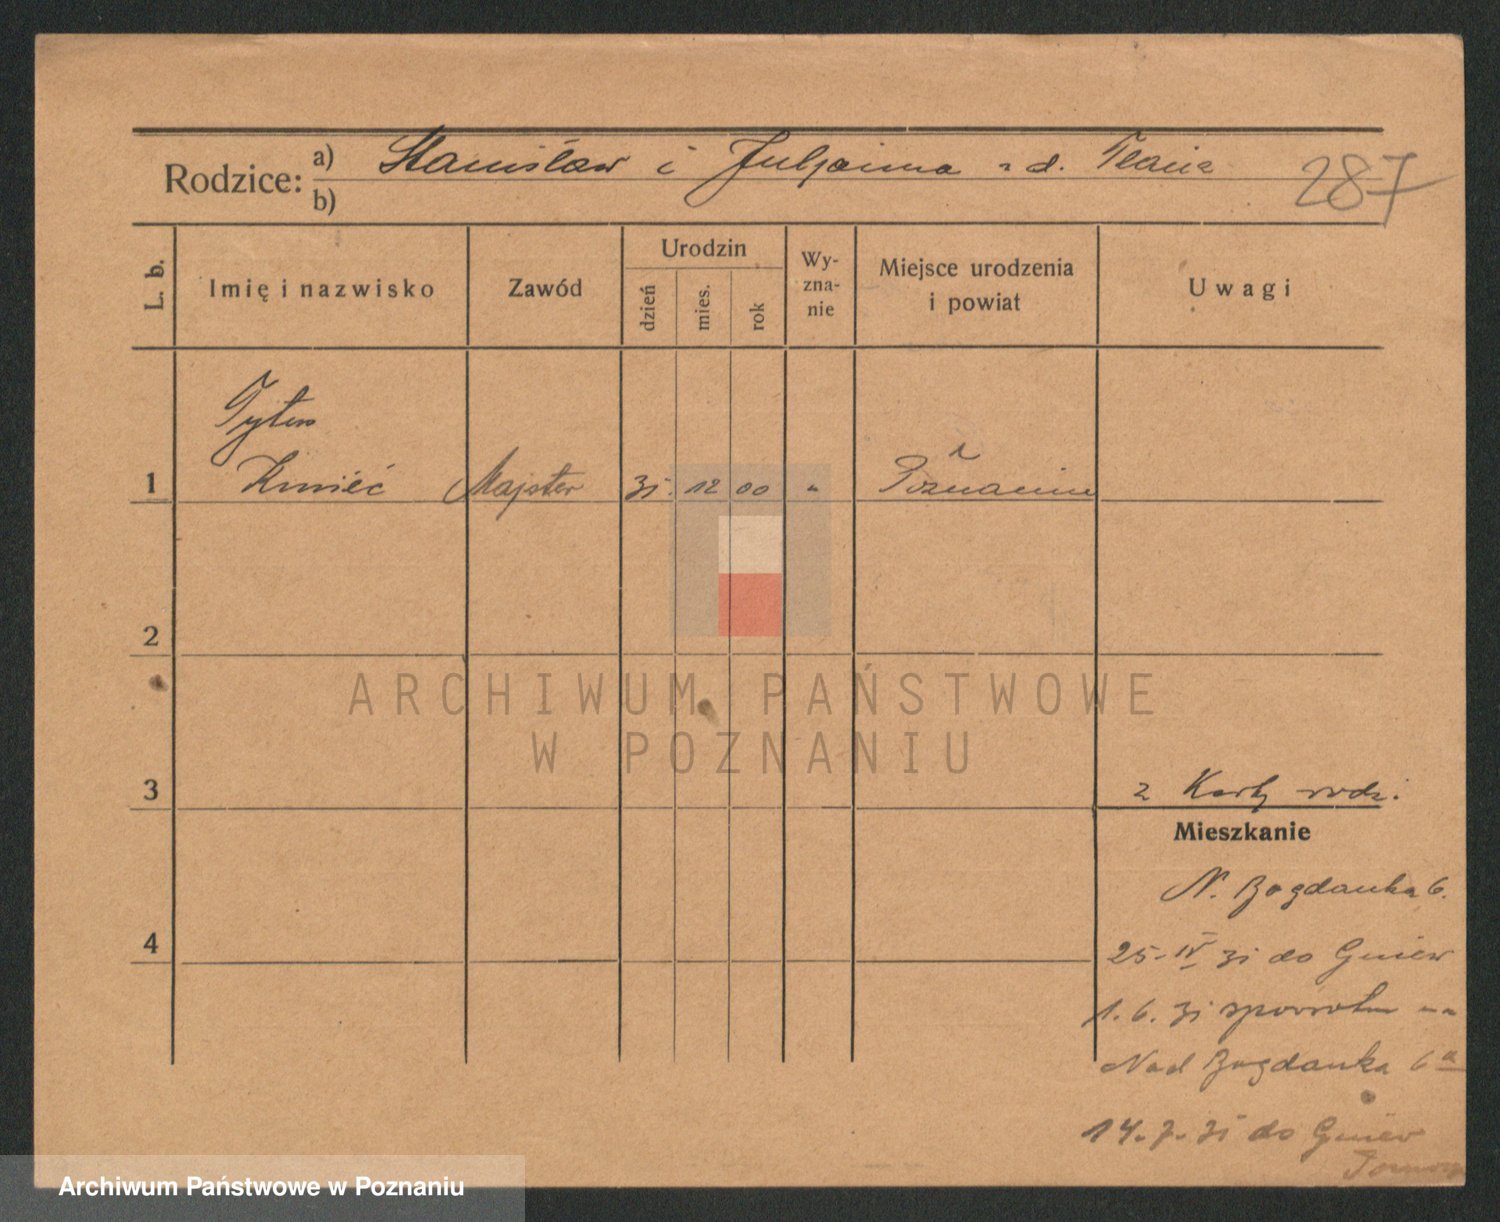 Rodzice: a) Stanisław i Juljanna z d.
287
b)
L. b.
Imię i nazwisko
Zawód
Urodzin
dzień
mies.
rok
Wy-
zna-
nie
Miejsce urodzenia
i powiat
Uwagi
Tytus
1 Kmieć Majster 31. 12 00 " Poznaniu
2
ARCHIWUM PAŃSTWOWE
W POZNANIU
3
z Karty rodz.
Mieszkanie
N. Bogdanka 6.
4
25-IV 31 do Gniew
1.6.31 spowrotem
Nad Bogdanka 6a
14.7.31 do Gniew
Archiwum Państwowe w Poznaniu